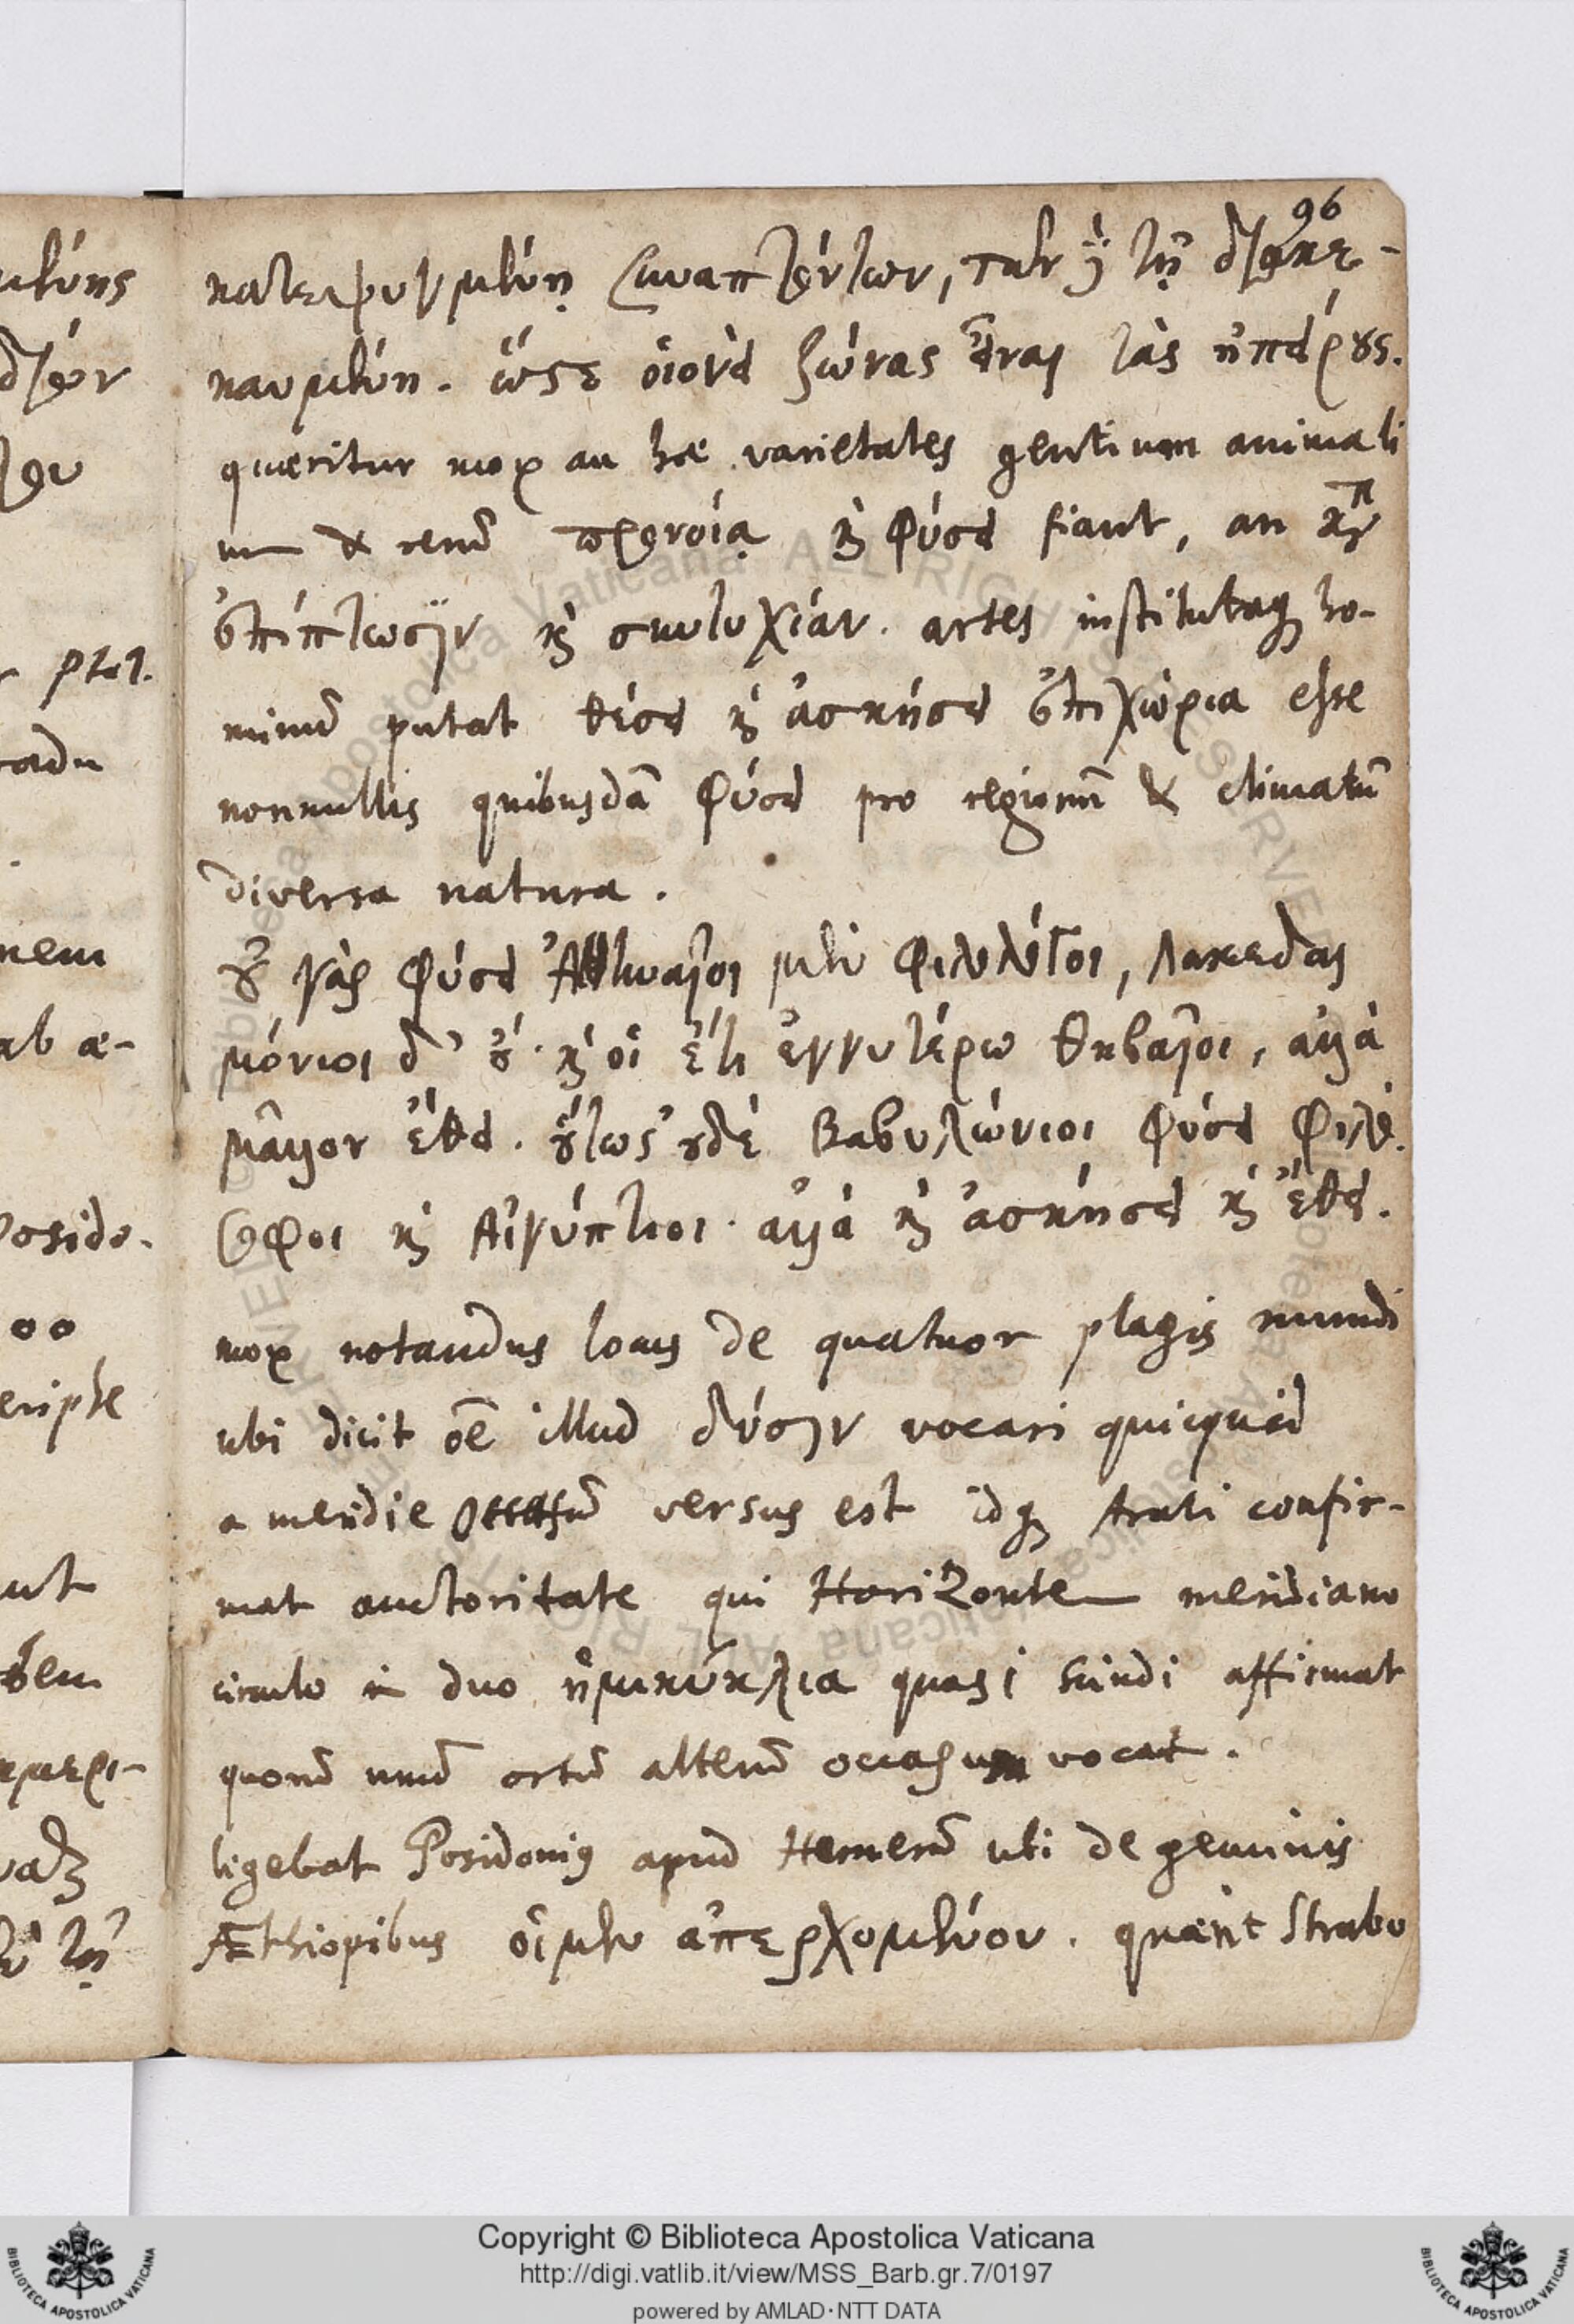 96
κατεψυγμένῃ συναπτόντων, τῶν δὲ τῇ διακε-
καυμένῃ. ὥστε οἱονεὶ ζώνας εἶναι τὰς ἠπείρους.
quæritur mox an hæ varietates gentium animali
um & rerū προνοίᾳ καὶ φύσει fiant, an κατὰ
ἐπίπτωσιν καὶ συντυχίαν. artes institutaq ho-
minū putat θέσει καὶ ἀσκήσει ἐπιχώρια esse
nonnullis quibusdā φύσει pro regionū & climatū
diversa natura.
οὐ γὰρ φύσει Ἀθηναῖοι μὲν φιλόλογοι, Λακεδαι
μόνιοι δ' οὔ. καὶ οἱ ἔτι ἐγγυτέρω Θηβαῖοι, ἀλλὰ
μᾶλλον ἔθει. οὕτως οὐδὲ Βαβυλώνιοι φύσει φιλό.
σοφοι καὶ Αἰγύπτιοι. ἀλλὰ καὶ ἀσκήσει καὶ ἔθει.
mox notandus locus de quatuor plagis mundi
ubi dicit oē illud δύσιν vocari quicquid
a meridie occasū versus est idq Arati confir-
mat auctoritate qui Horizontem meridiano
circulo in duo ἡμικύκλια quasi scindi affirmat
quorū unū ortū alterū occasum vocat.
ligebat Posidonius apud Homerū ubi de geminis
Æthiopibus οἱ μὲν ἀπερχομένου. quam Strabo
μένης
ptol.
ab æ-
Posido.
οο